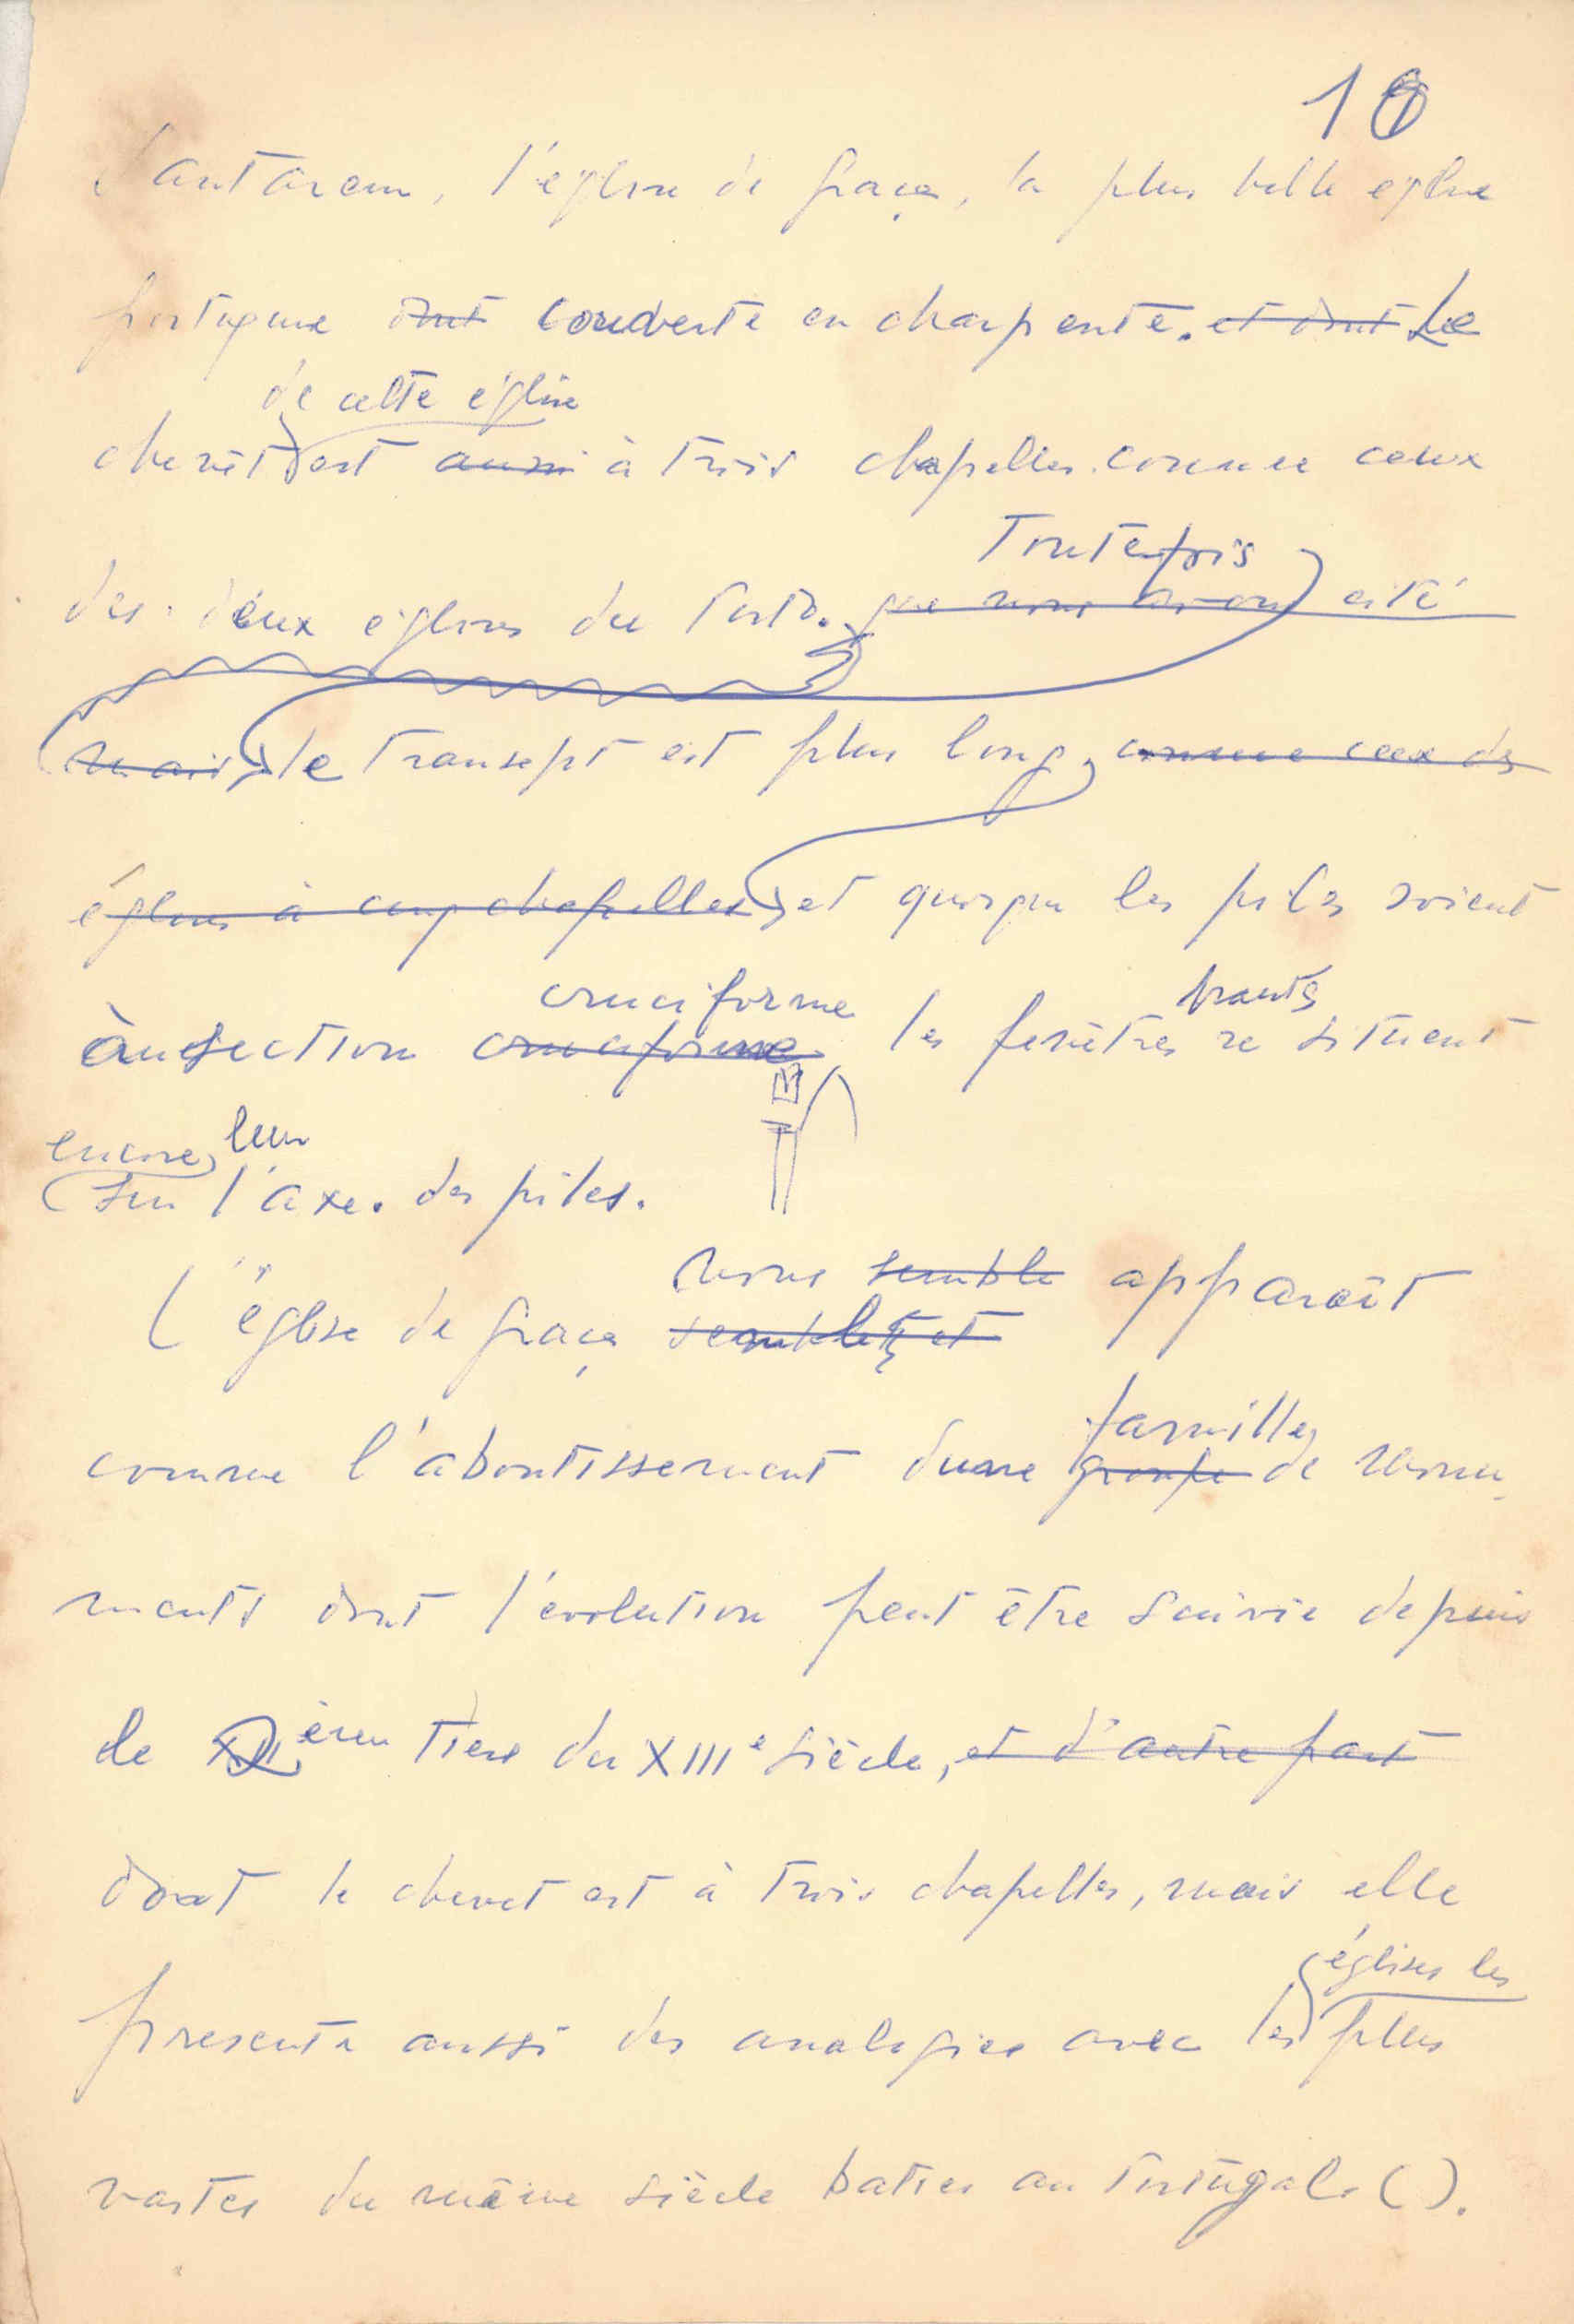 10
Santarem, l'église de Graça, la plus belle église
portugaise dont couverte en charpente. et dont Le
de cette église
chevet est aussi à trois chapelles comme ceux
Toutefois
des deux églises du Porto. que nous avons cité
mais, le transept est plus long, comme ceux des
églises à cinq chapelles, et quoique les piles soient
cruciforme hauts
section cruciforme les fenêtres se situent
encore leur
sur l'axe. des piles.
nous semble apparaît
L'église de Graça semble et
famille
comme l'aboutissement d'une groupe de monu-
ments dont l'évolution peut être suivie depuis
le tiers du XIIIe siècle, et d'autre part
dont le chevet est à trois chapelles, mais elle
églises les
presente aussi des analogies avec les plus
vastes du même siècle baties au Portugal. ( ).